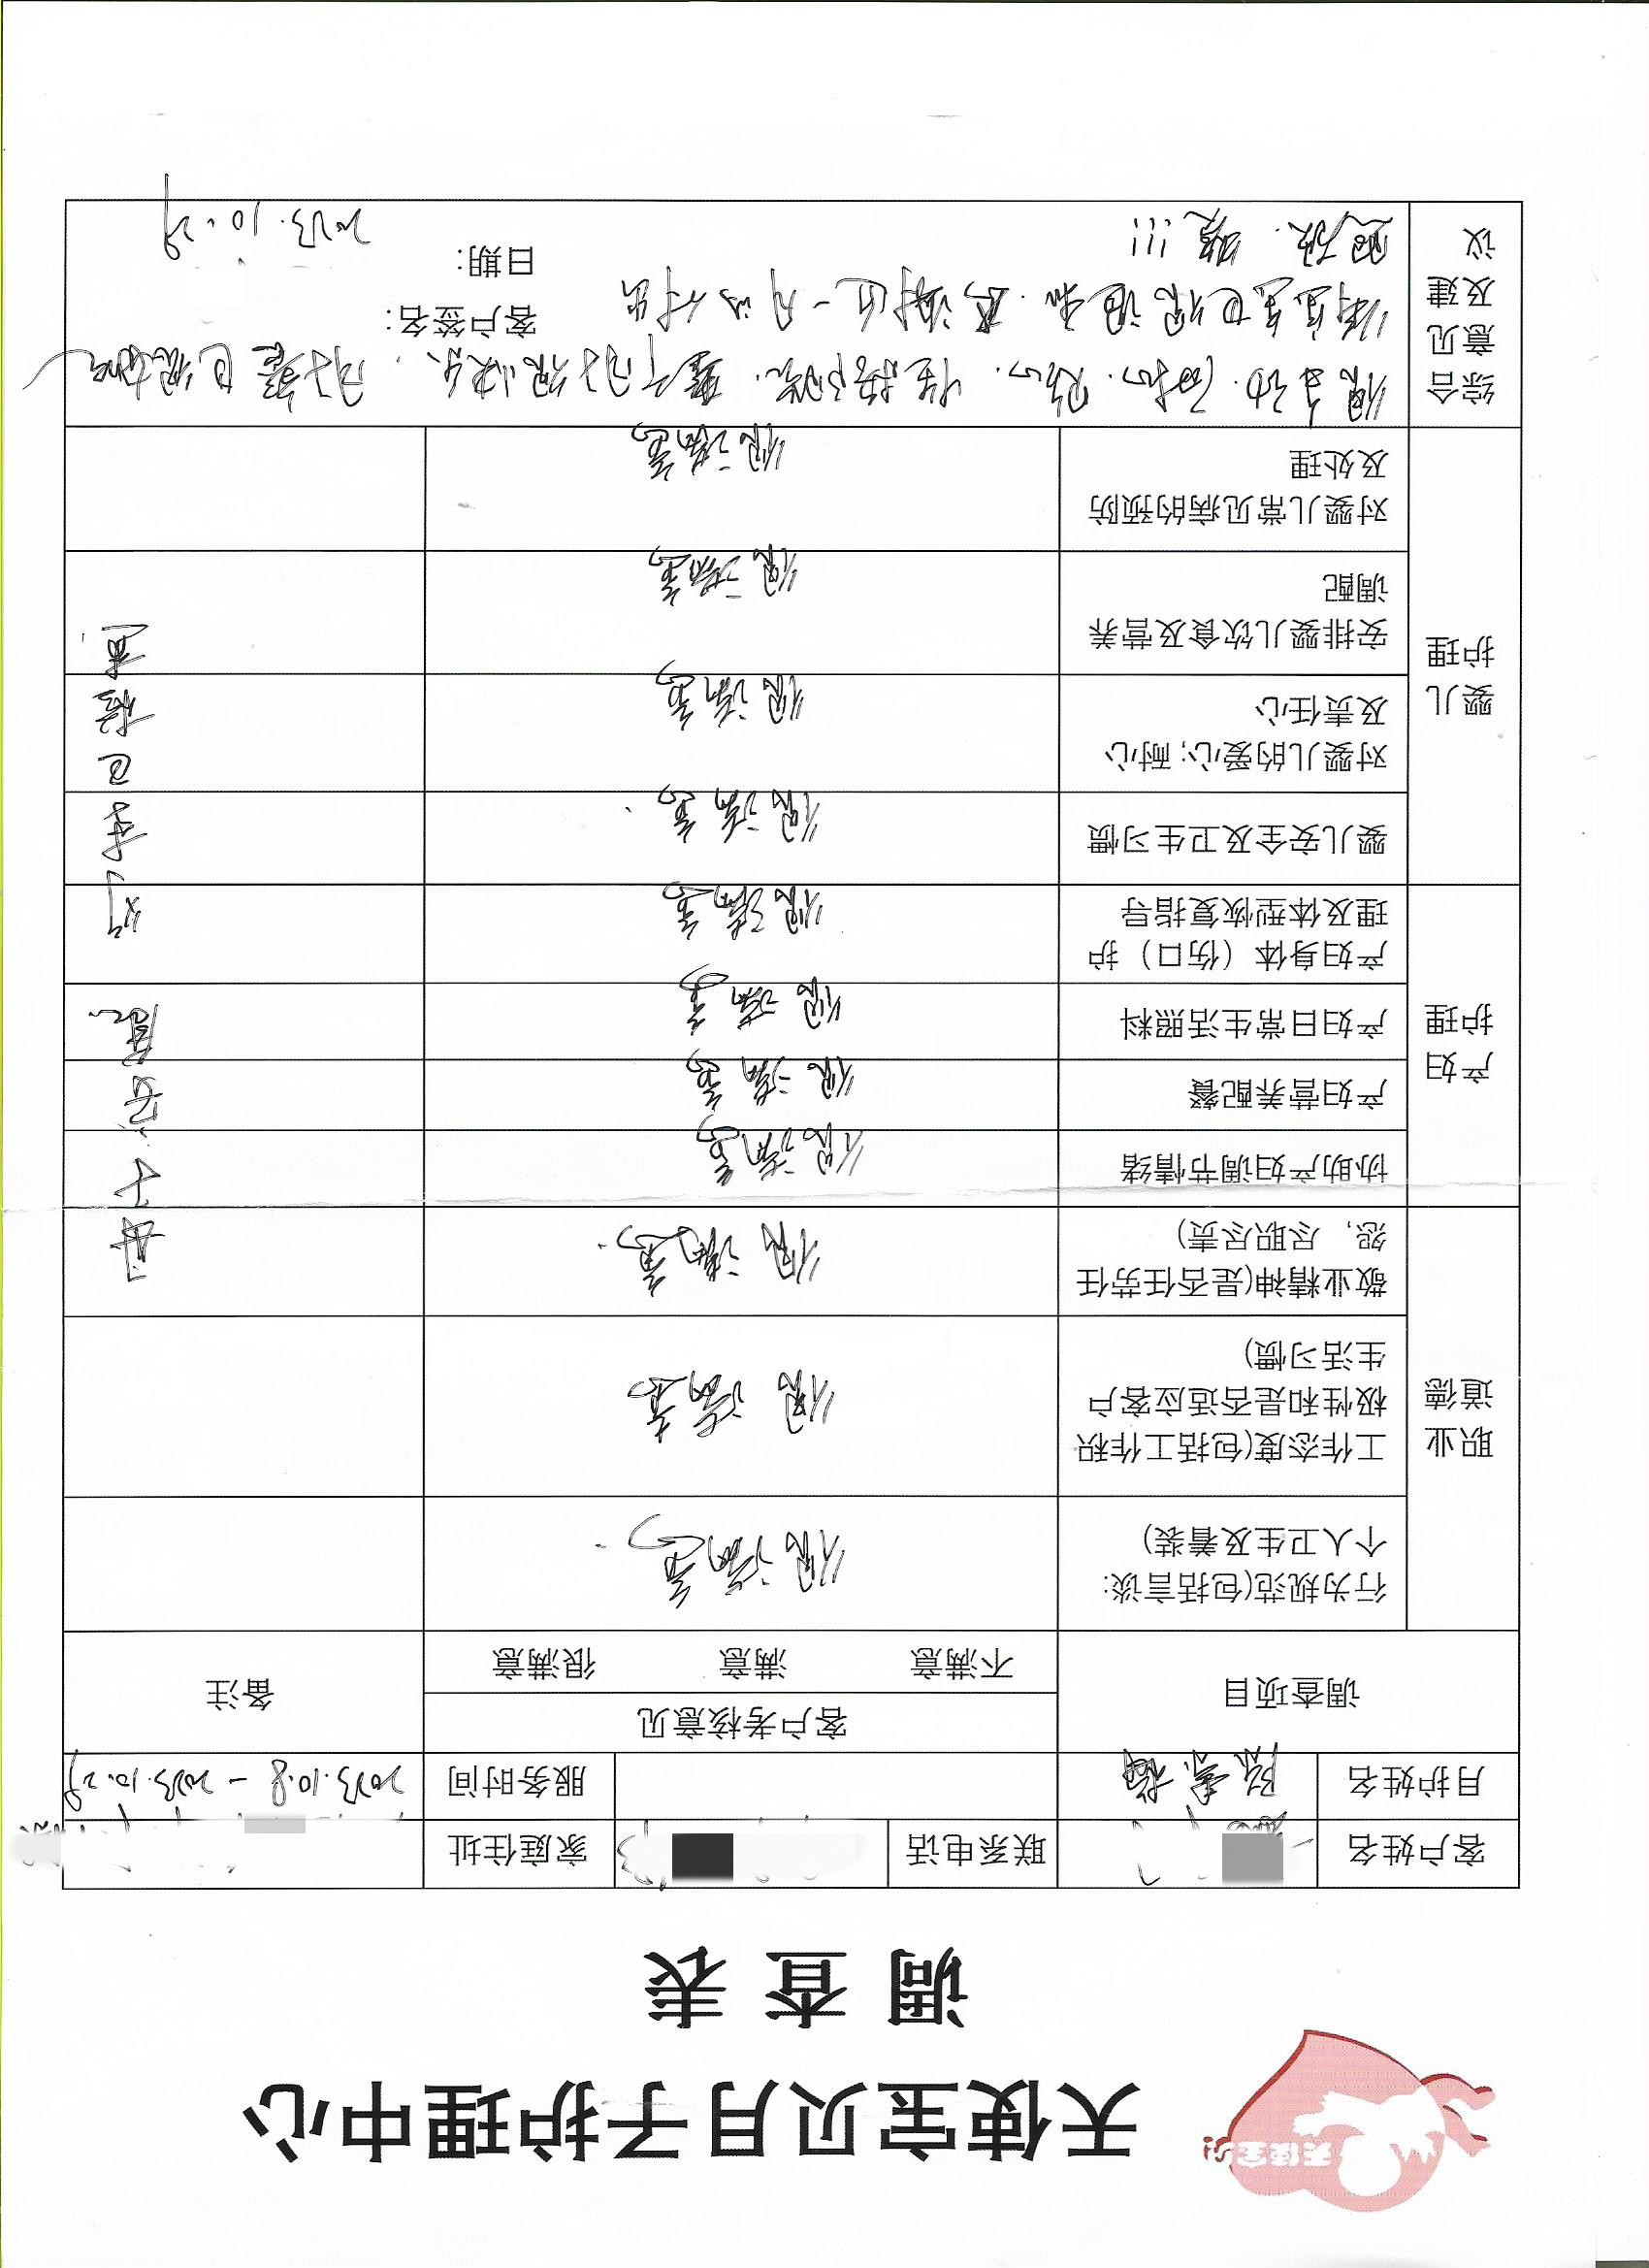 天使宝贝
天使宝贝月子护理中心
调查表
客户姓名 联系电话 家庭住址
月护姓名 陈素梅 服务时间 2023.10.8 - 2023.10.29
调查项目 客户考核意见 备注
不满意 满意 很满意
职业道德
行为规范(包括言谈:
个人卫生及着装) 很满意.
工作态度(包括工作积
极性和是否适应客户
生活习惯) 很满意
敬业精神(是否任劳任
怨, 尽职尽责) 很满意.
产妇护理
协助产妇调节情绪 很满意
产妇营养配餐 很满意
产妇日常生活照料 很满意
产妇身体(伤口)护
理及体型恢复指导 很满意
婴儿护理
婴儿安全及卫生习惯 很满意.
对婴儿的爱心; 耐心
及责任心 很满意
安排婴儿饮食及营养
调配 很满意
对婴儿常见病的预防
及处理 很满意
母子
已检查.
综合意见及建议
很主动. 细心. 性格 整个月子很快乐. 月嫂也很
宝宝也很 感谢这一月的付出
照顾. !!!
客户签名:
日期: 2023.10.29